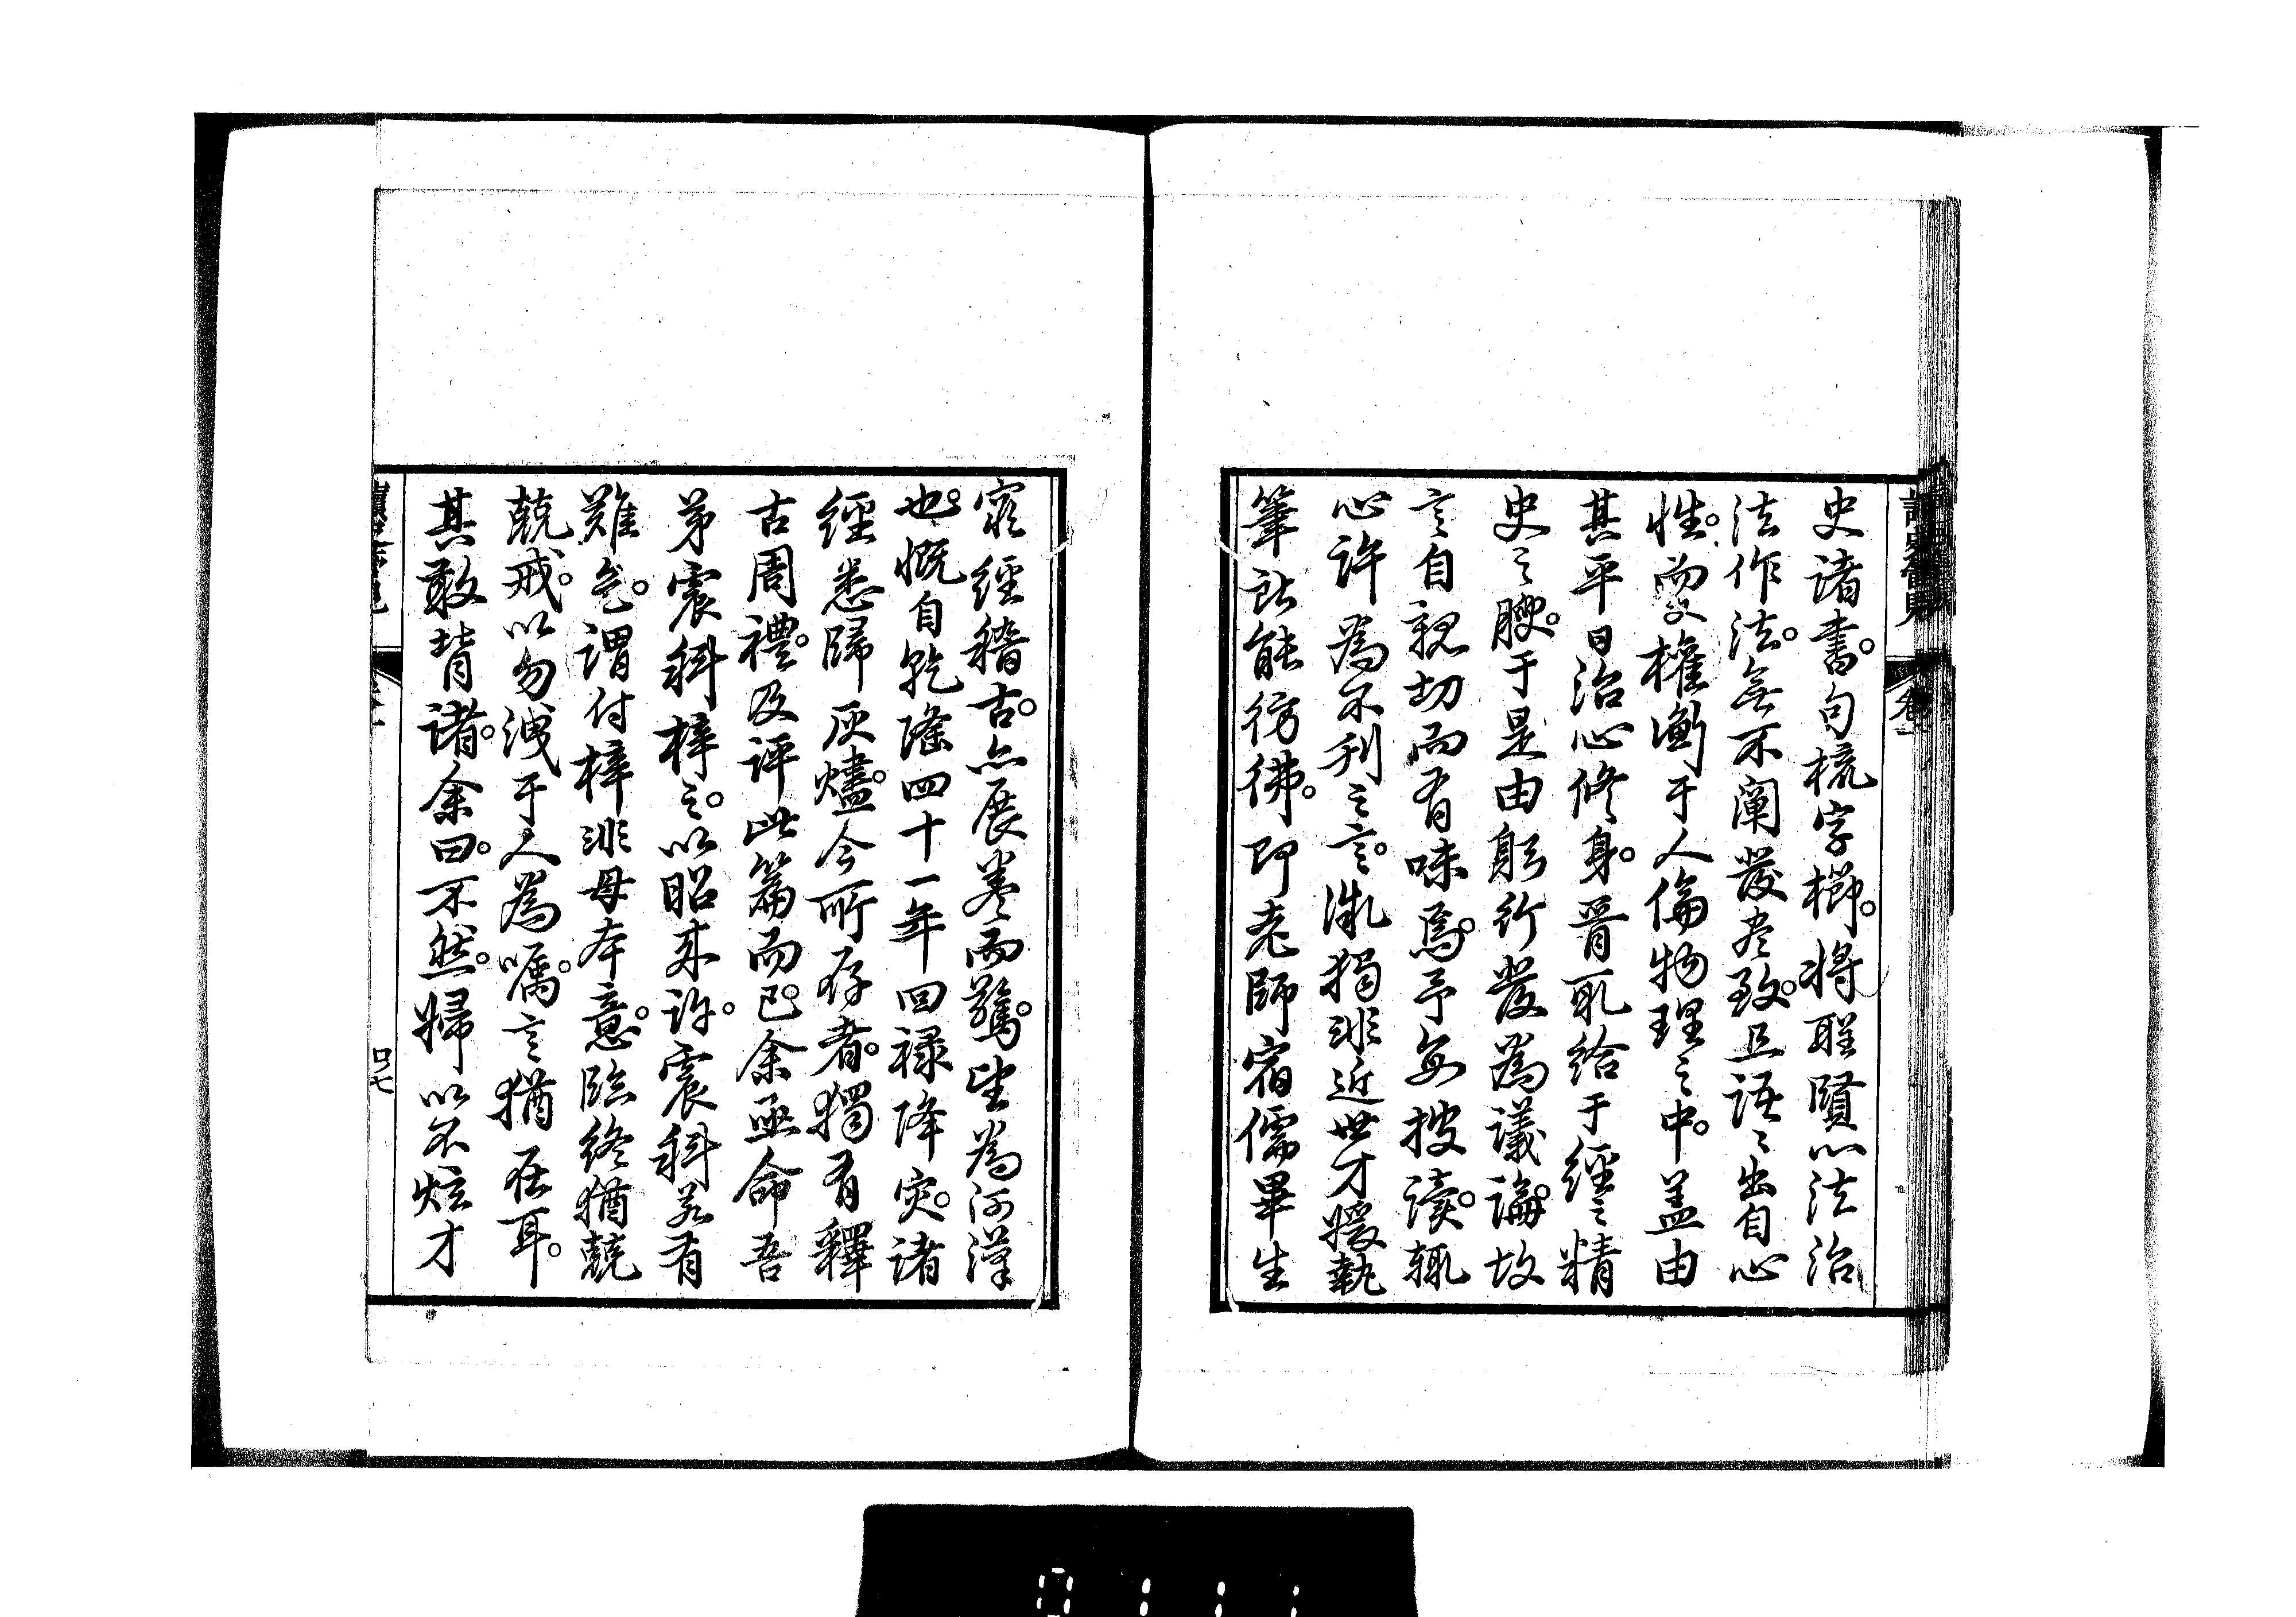 史諸書。句梳字櫛。將聖賢心法治
法作法。無不闡發盡致。且語〻出自心
性。而又權衡于人倫物理之中。蓋由
其平日治心修身。胥取給于經〻精
史〻腴。于是由躬行發為議論。故
言自親切而有味焉。予每披讀。輒
心許為不刊之言。洵獨非近世才媛執
筆所能彷彿。即老師宿儒畢生
窮經稽古。亦展卷而驚。望為河漢
也。慨自乾隆四十一年回祿降災。諸
經悉歸灰燼。今所存者。獨有釋
古周禮。及評此篇而已。余亟命吾
弟震科梓之。以昭來許。震科若有
難色。謂付梓非母本意。臨終猶兢
兢戒。以勿洩于人為囑。言猶在耳。
其敢背諸。余曰。不然。婦以不炫才